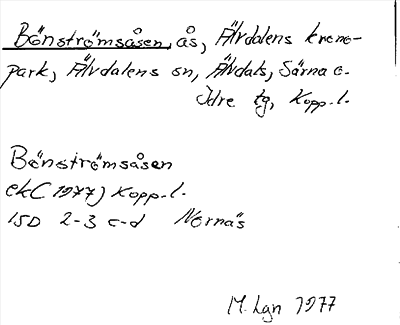 Bönströmsåsen, ås, Älvdalens krono-
park, Älvdalens sn, Älvdals, Särna o.
Idre tg, Kopp.l.
Bönströmsåsen
ekC 1977) Kopp.l.
15D 2-3 c-d Nornäs
M. Lgn 1977